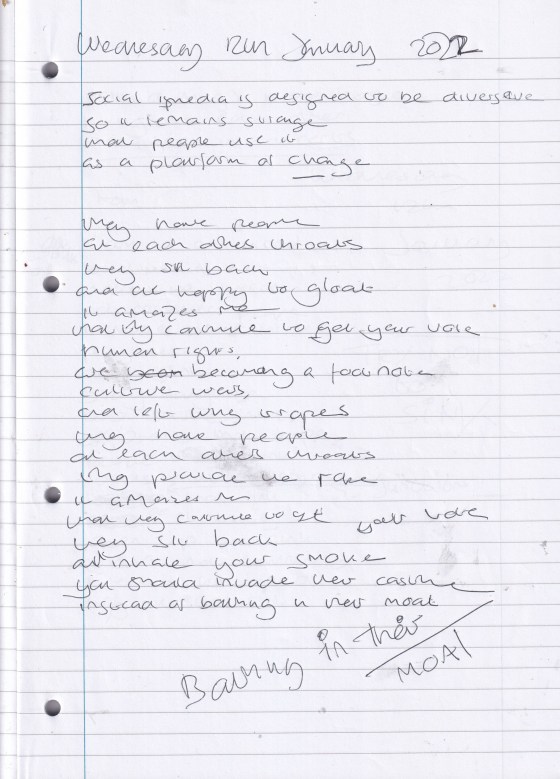 Wednesday 12th January 2022
Social media is designed to be diversive
So it remains strange
that people use it
as a platform of change
they have people
at each others throats
they sit back
and are happy to gloat
it amazes me
that they continue to get your vote
human rights,
are becoming a footnote
culture wars,
and left wing tropes
they have people
at each others throats
they provide the rope
it amazes me
that they continue to get your vote
they sit back
and inhale your smoke
you should invade their castle
instead of bathing in their moat
Bathing in their
MOAT